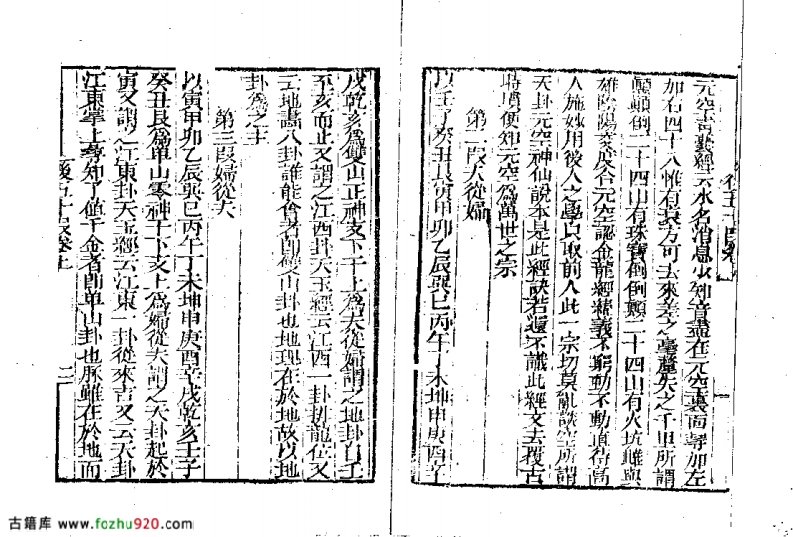 元空青囊經云水名消息少知音盡在元空裏面尋加左
加右四十八惟有衰方可去來差之毫釐失之千里所謂
顛顛倒二十四山有珠寶倒倒顛二十四山有火坑雌與
雄陰陽交度合元空認金龍經緯義不窮動不動直待高
人施妙用後人之學只取前人此一宗切莫亂談空所謂
天卦元空神仙說本是此經訣若還不識此經文去覆古
時墳便知元空爲萬世之宗
第二段夫從婦
以壬子癸丑艮寅甲卯乙辰巽巳丙午丁未坤申庚酉辛
戌乾亥爲雙山正神亥下干上爲夫從婦謂之地卦自壬
至亥而止又謂之江西卦天玉經云江西一卦排龍位又
云地畵八卦誰能會者卽雙山卦也地理在於地故以地
卦爲之主
第三段婦從夫
以寅甲卯乙辰巽巳丙午丁未坤申庚酉辛戌乾亥壬子
癸丑艮爲單山零神干下亥上爲婦從夫謂之天卦起於
寅又謂之江東卦天玉經云江東一卦從來吉又云天卦
江東掌上尋知了値千金者卽單山卦也脉雖在於地而
古籍库 www.fozhu920.com